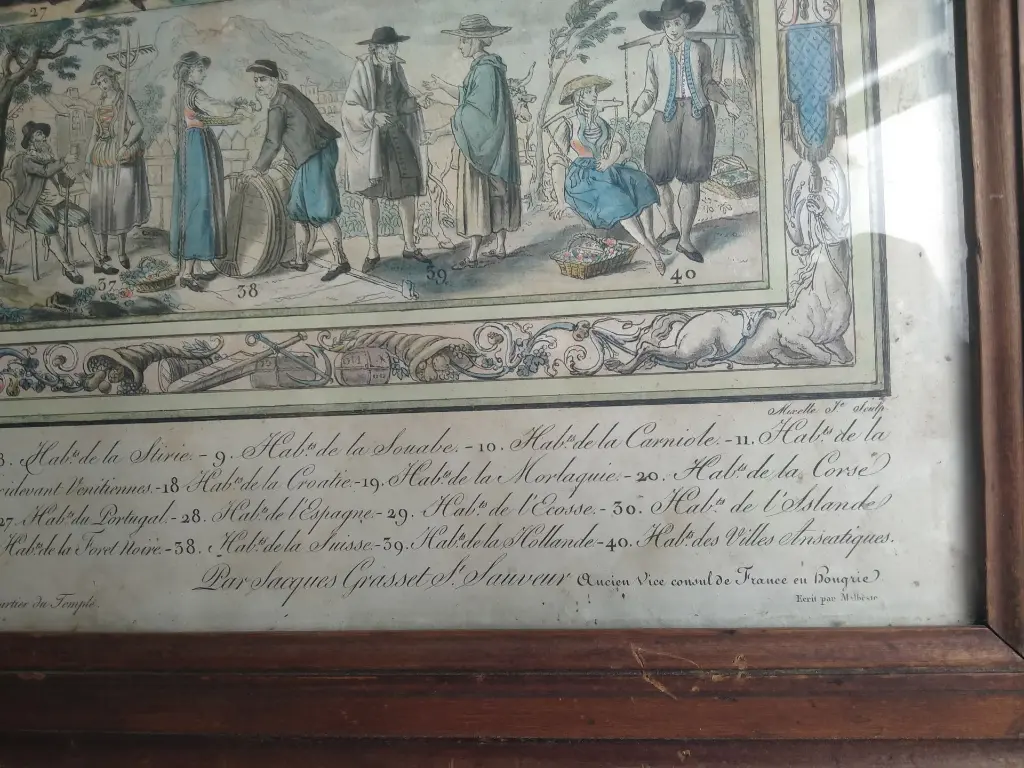 27
37
38
39
40
Mixelle Jne Sculp
8. Habts de la Stirie.-9. Habts de la Souabe.-10. Habts de la Carniole.-11. Habts de la
cidevant Venitiennes.-18 Habts de la Croatie.-19. Habts de la Morlaquie.-20. Habts de la Corse
27. Habts du Portugal.-28. Habts de l'Espagne.-29. Habts de l'Ecosse.-30. Habts de l'Islande
Habts de la Foret Noire.-38. Habts de la Suisse.-39. Habts de la Hollande-40. Habts des Villes Anseatiques.
Par Jacques Grasset St. Sauveur Ancien Vice consul de France en Hongrie
du Temple.
Ecrit par Malbeste